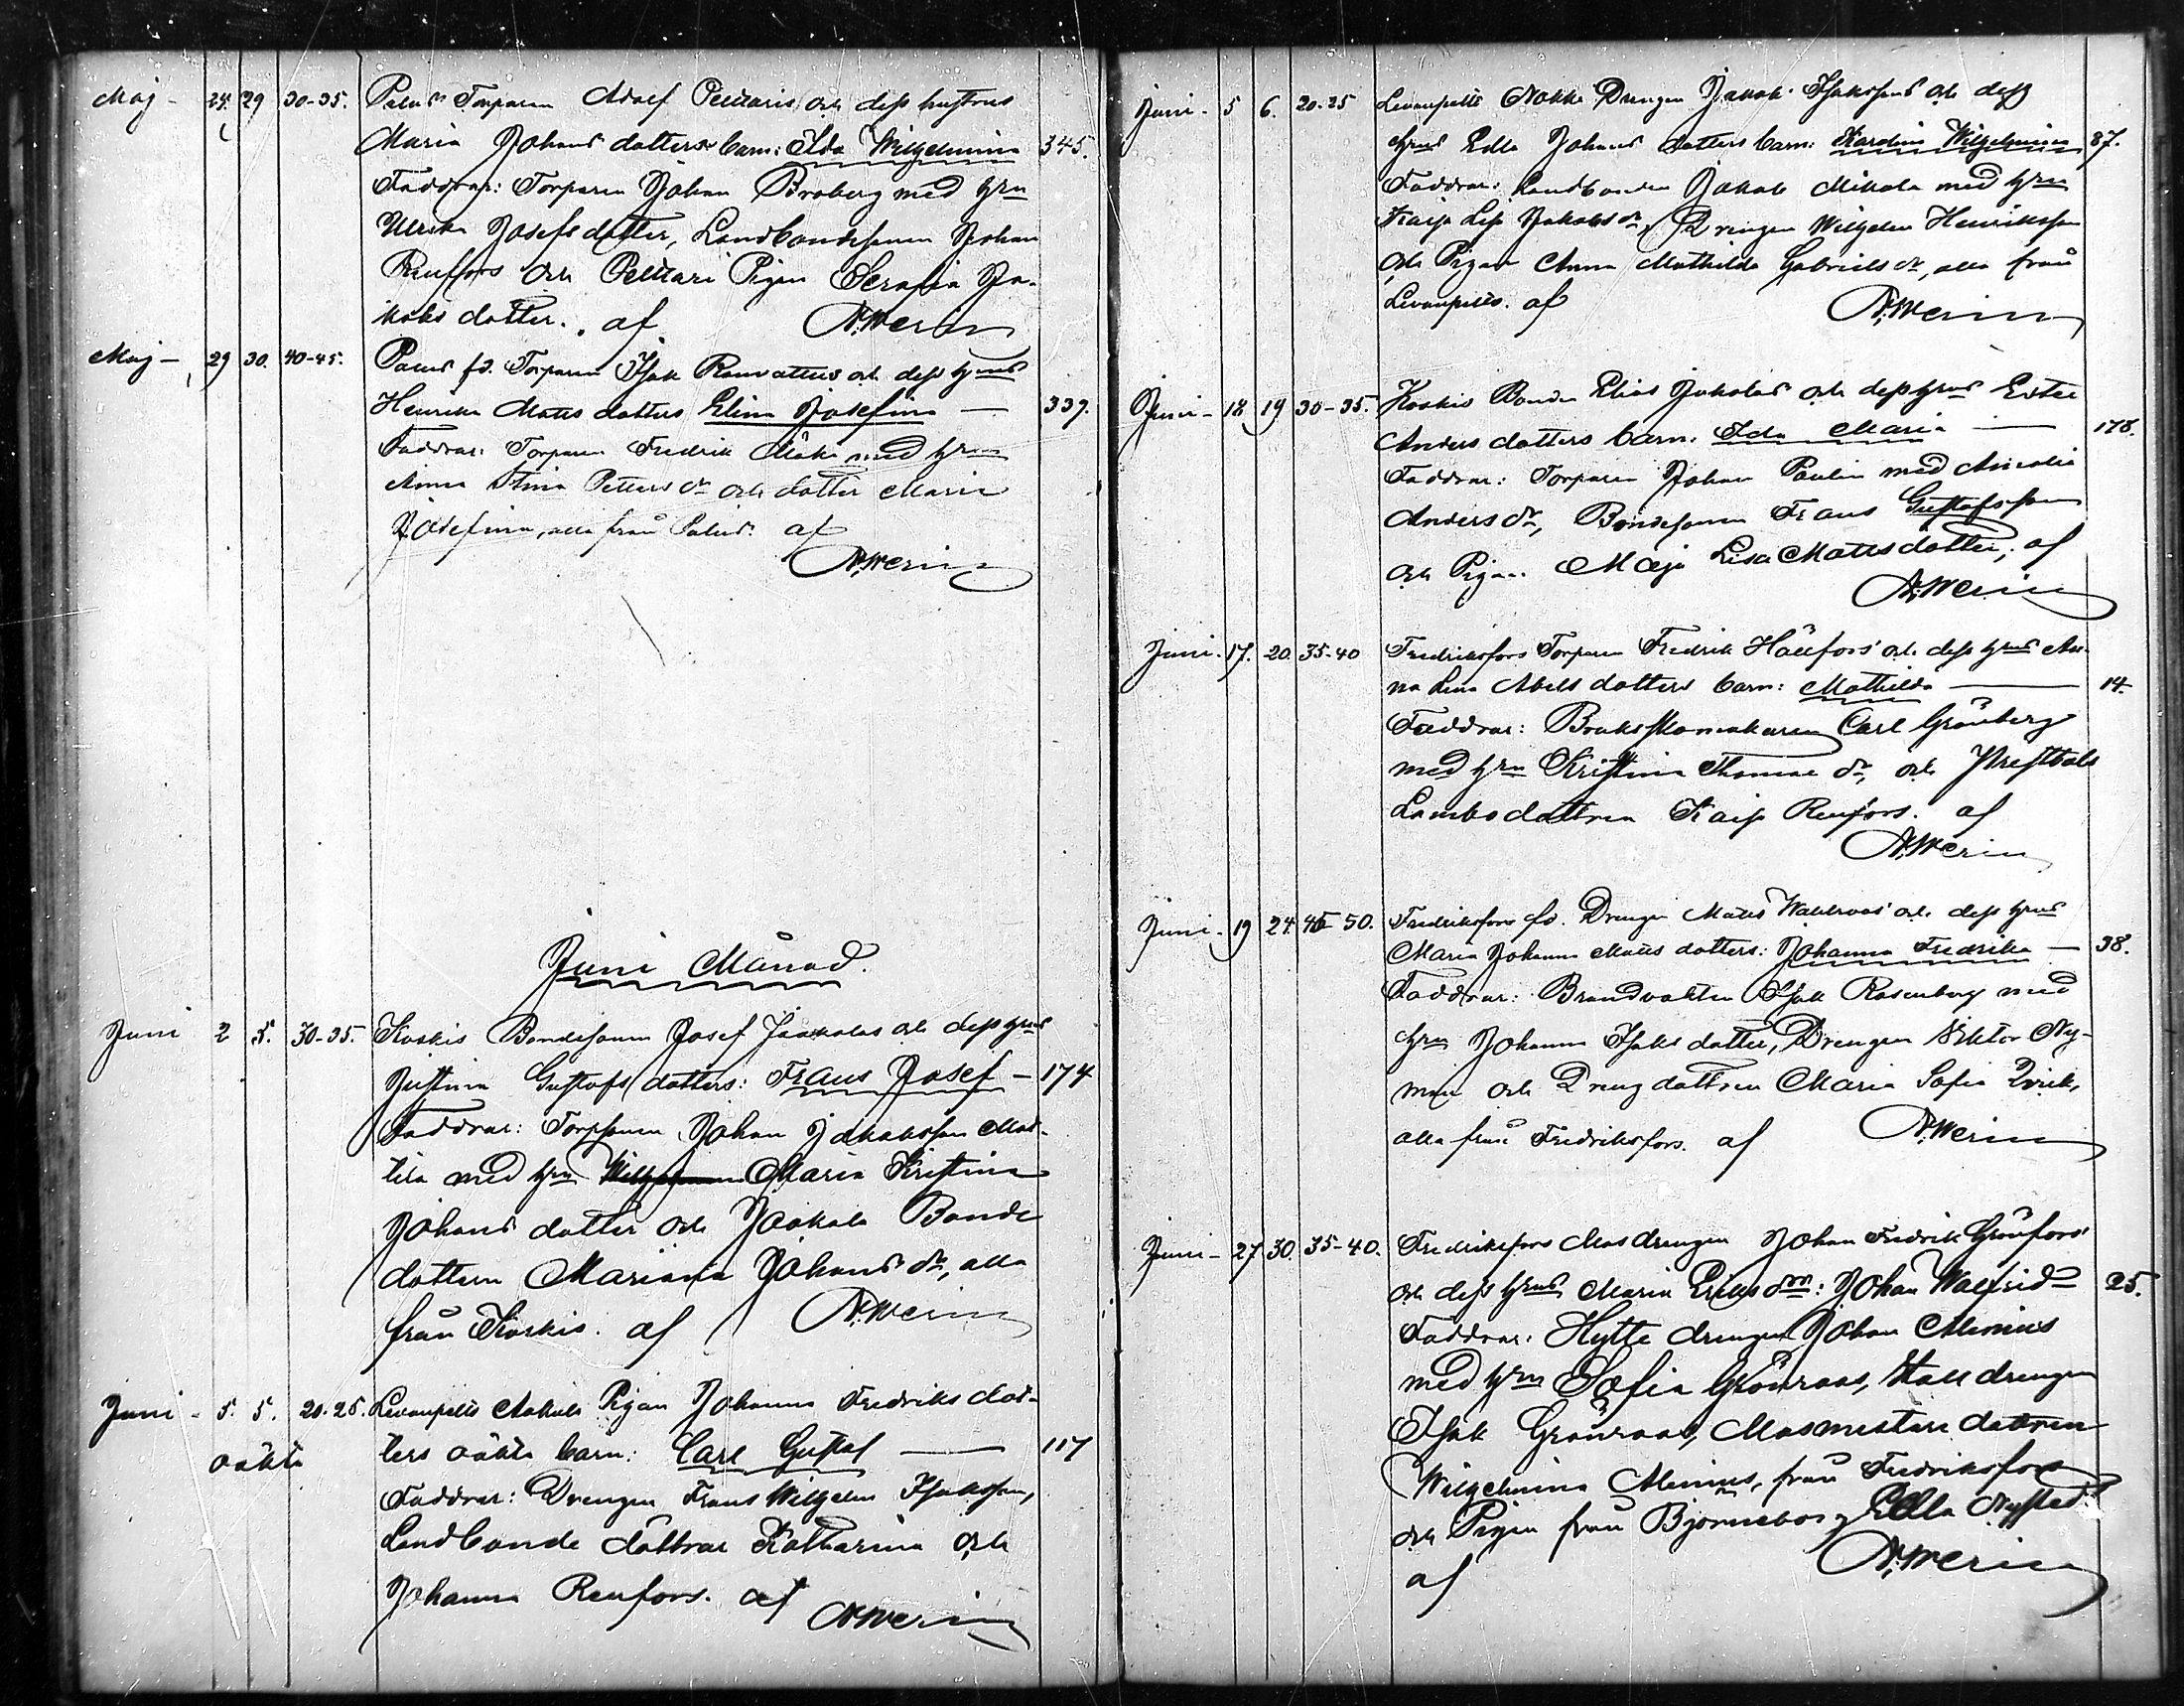 Maj - 24. 29 30-35. Palus Torparen Adolf Peltaris och dess hustrus
Maria Johans dotters barn: Ida Wilhelmina 345.
Faddrar: Torparen Johan Broberg med hru
Ulrika Josefs dotter, Landbondesonen Johan
Renfors och Peltari Pigan Serafia Ja-
kobs dotter. af N. Merin
Maj - 29 30. 40-45. Palus fd. Torparen Isak Ranvattus och dess hrus
Henrika Matts dotters Elina Josefina — 339.
Faddrar: Torparen Fredrik Mäki med hrun
Anna Stina Petters dr och dotter Maria
Josefina, alla från Palus. af
N. Merin
Juni Månad.
Juni 2 5. 30-35. Koskis Bondesonen Josef Jaakolas och dess hrus
Justina Gustafs dotters: Frans Josef — 174
Faddrar: Torpsonen Johan Jakobsson Mat-
tila med hru Maria Kristina
Johans dotter och Jaakola Bonde
dottern Mariana Johans dr, alla
från Koskis. af N. Merin
Juni - 5. 5. 20-25. Levanpelts Pigan Johanna Fredriks dot-
oäkta ters oäkta barn: Carl Gustaf — 117
Faddrar: Drengen Frans Wilhelm Isaksson,
Landbonde döttrar Katharina och
Johanna Renfors. af N. Merin
Juni - 5 6. 20-25 Levanpelts Nokka Drengen Jakob Isakssons och dess
hrus Edla Johans dotters barn: Karolina Wilhelmina 87.
Faddrar: Landbonden Jakob Mikola med hru
Kaisa Lisa Jakobs dr, Drengen Wilhelm Henriksson
och Pigan Anna Mathilda Gabriels dr, alla från
Levanpelts. af N. Merin
Juni - 18 19 30-35. Koskis Bonden Elias Jaakolas och dess hrus Ester
Anders dotters barn: Ida Maria — 178.
Faddrar: Torparen Johan Paulin med Amalia
Anders dr, Bondesonen Frans Gustafsson
och Pigan Maja Lisa Matts dotter, af
N. Merin
Juni - 17. 20. 35-40 Fredriksfors Torparen Fredrik Hällfors och dess hrus An-
na Lena Abels dotters barn: Mathilda — 14.
Faddrar: Bruksskomakaren Carl Grönberg
med hru Kristina Thomae dr, och
Lambo dottren Kaisa Renfors. af
N. Merin
Juni - 19 24. 45-50. Fredriksfors fd. Drengen Matts Wahlroos och dess hrus
Maria Johanna Matts dotters: Johanna Fredrika — 38.
Faddrar: Brandvakten Isak Rosenberg med
hru Johanna Isaks dotter, Drengen Viktor Ny-
man och Dreng dottren Maria Sofia
alla från Fredriksfors. af N. Merin
Juni - 27 30. 35-40. Fredriksfors Masdrengen Johan Fredrik Grönfors
och dess hrus Maria Eriks drs: Johan Walfrid 25.
Faddrar: Hytte drengen Johan Alenius
med hru Sofia Grönroos, Stall drengen
Isak Grönroos, Masmästare dottren
Wilhelmina Alenius, från Fredriksfors
och Pigan från Björneborg Edla Nysted.
af N. Merin